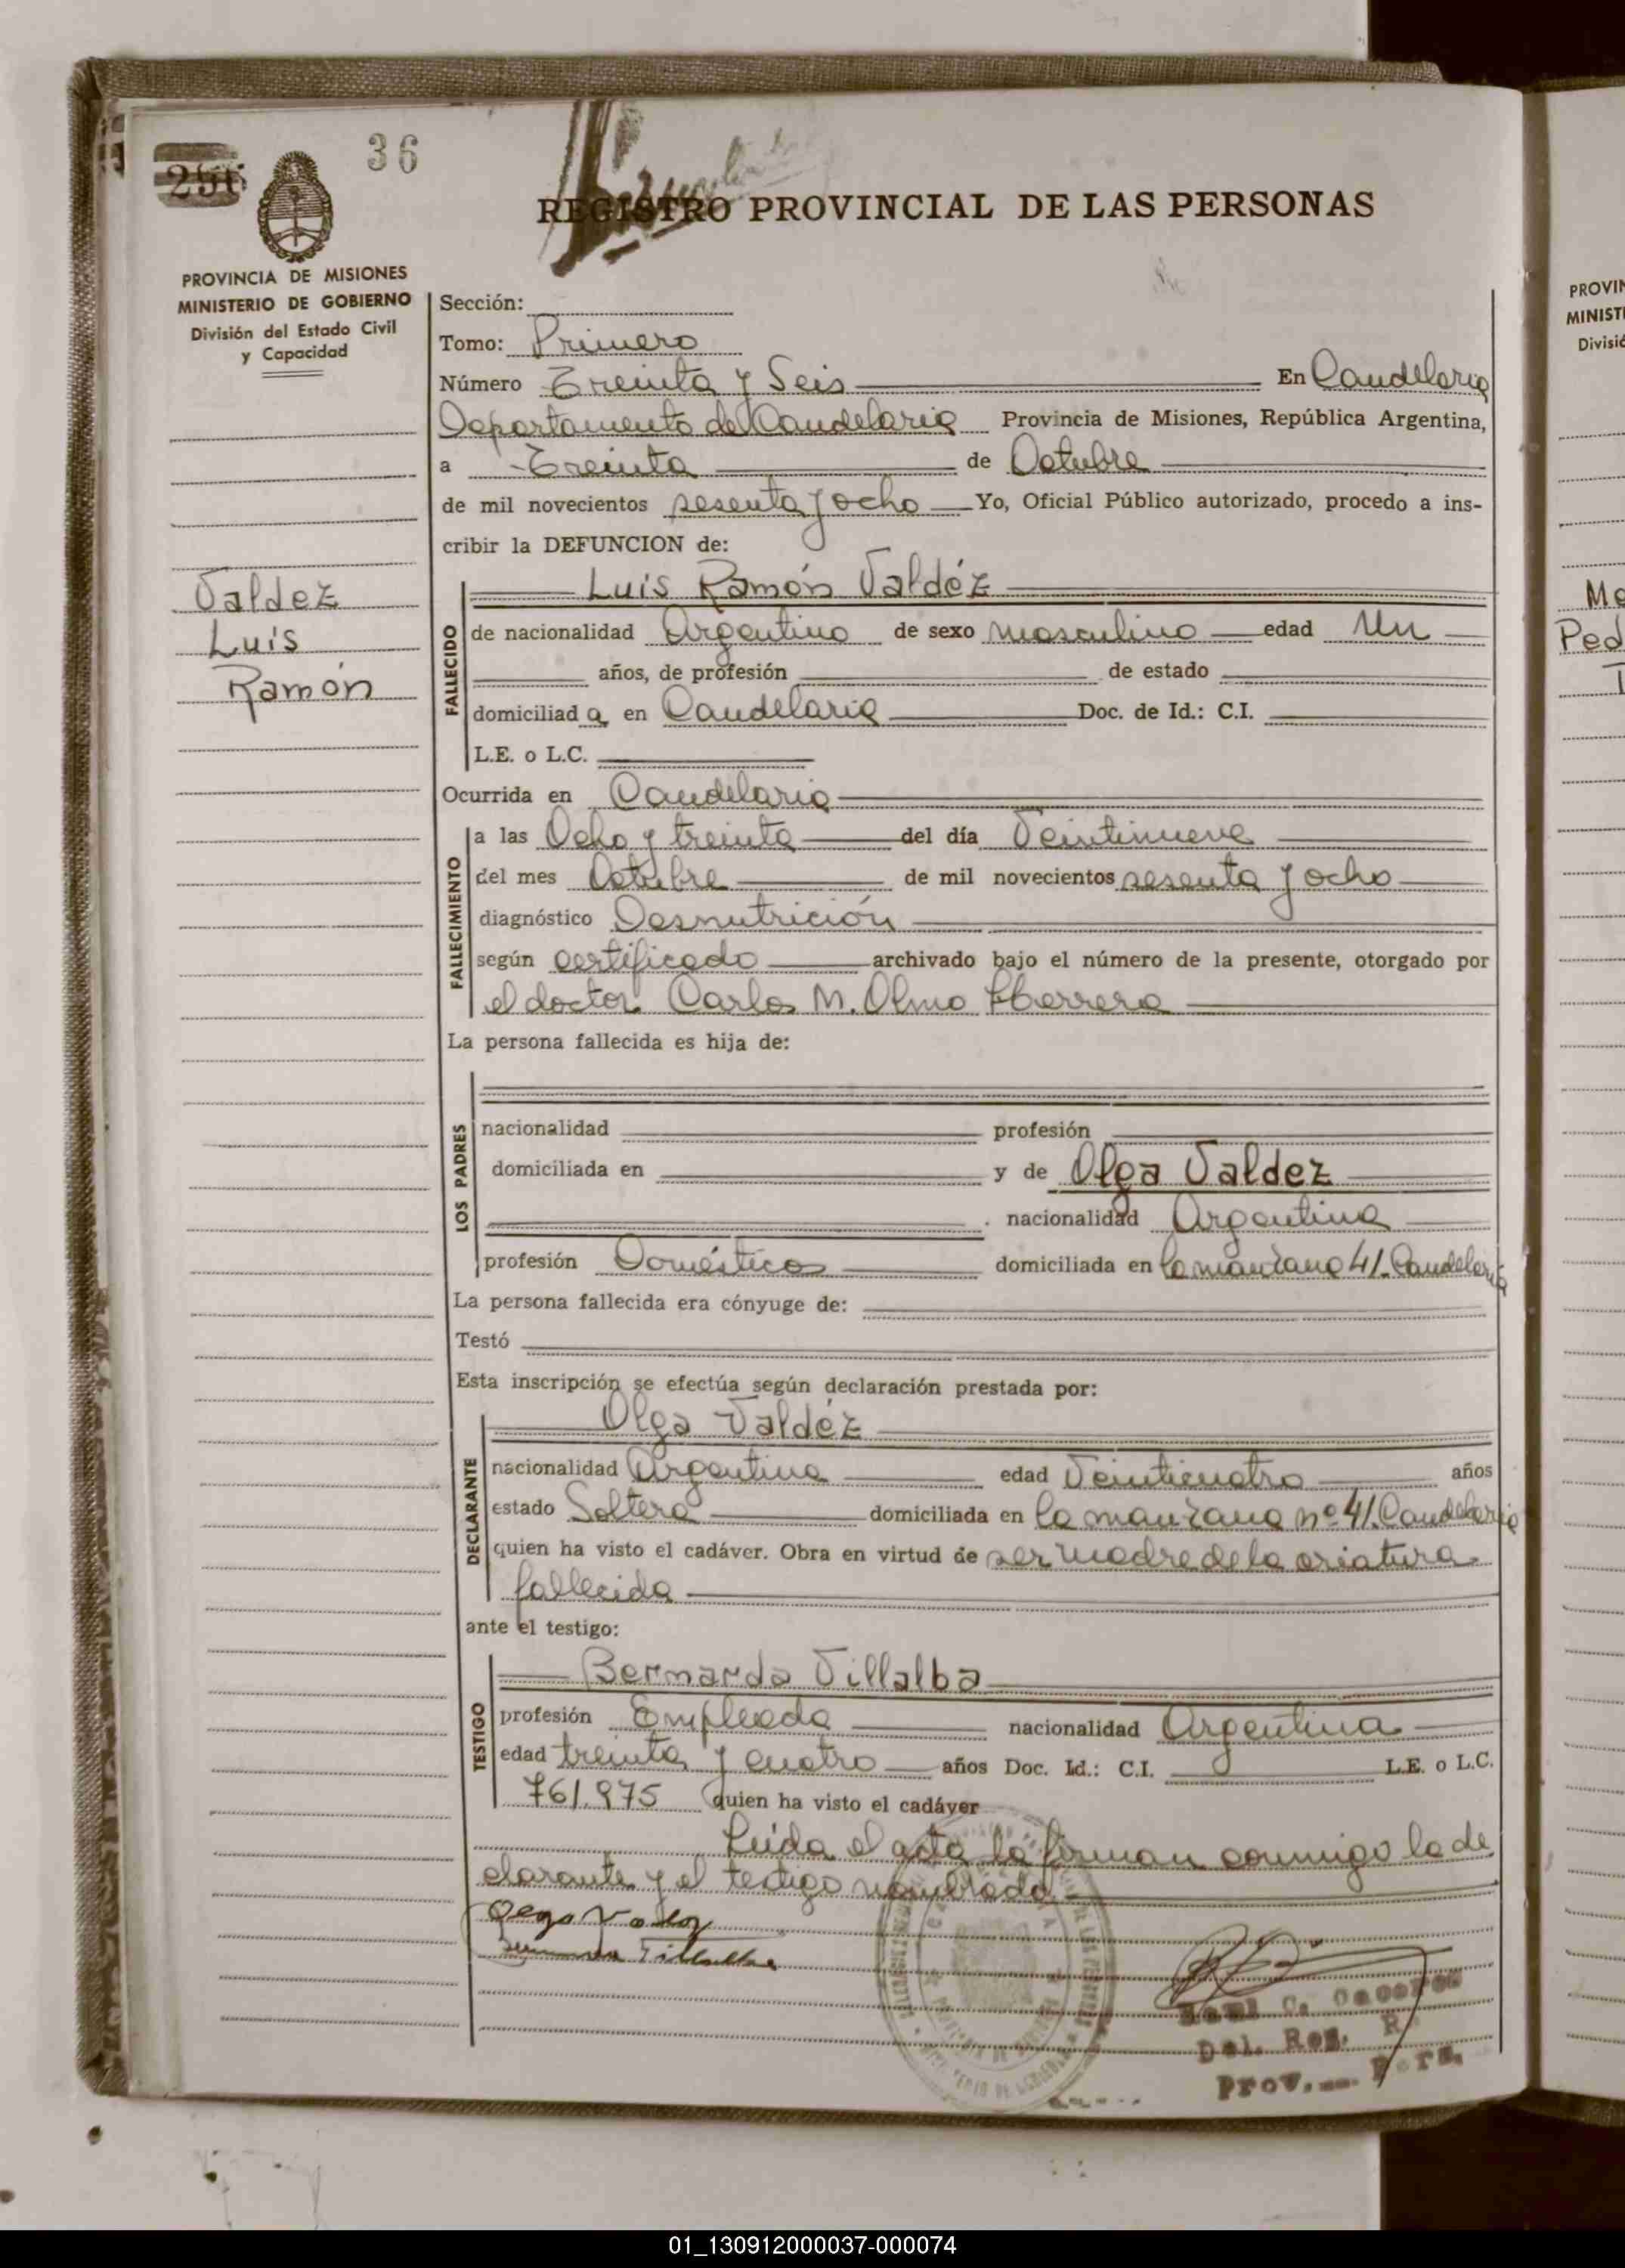 36
REGISTRO PROVINCIAL DE LAS PERSONAS
PROVINCIA DE MISIONES
MINISTERIO DE GOBIERNO
División del Estado Civil
y Capacidad
Valdez
Luis
Ramón
Sección:
Tomo: Primero
Número Treinta y Seis En Candelaria
Departamento de Candelaria Provincia de Misiones, República Argentina,
a Treinta de Octubre
de mil novecientos sesenta y ocho Yo, Oficial Público autorizado, procedo a ins-
cribir la DEFUNCION de:
FALLECIDO
Luis Ramón Valdéz
de nacionalidad Argentino de sexo masculino edad Un
años, de profesión de estado
domiciliad a en Candelaria Doc. de Id.: C.I.
L.E. o L.C.
Ocurrida en Candelaria
FALLECIMIENTO
a las Ocho y treinta del día Veintinueve
del mes Octubre de mil novecientos sesenta y ocho
diagnóstico Desnutrición
según certificado archivado bajo el número de la presente, otorgado por
el doctor Carlos M. Olmo Herrera
La persona fallecida es hija de:
LOS PADRES
nacionalidad profesión
domiciliada en y de Olga Valdez
nacionalidad Argentina
profesión Domésticos domiciliada en la manzana 41. Candelaria
La persona fallecida era cónyuge de:
Testó
Esta inscripción se efectúa según declaración prestada por:
DECLARANTE
Olga Valdéz
nacionalidad Argentina edad Veinticuatro años
estado Soltera domiciliada en la manzana nº 41. Candelaria
quien ha visto el cadáver. Obra en virtud de ser madre de la criatura
fallecida
ante el testigo:
TESTIGO
Bernarda Villalba
profesión Empleada nacionalidad Argentina
edad treinta y cuatro años Doc. Id.: C.I. L.E. o L.C.
761.975 quien ha visto el cadáver
Leida el acta la firman conmigo la de
clarante y el testigo nombrado.
Olga Valdez
Bernarda Villalba
Raul C. Caceres
Del. Reg. R.
Prov. Pers.
PROVIN
MINISTE
Divisió
Ped
01_130912000037-000074